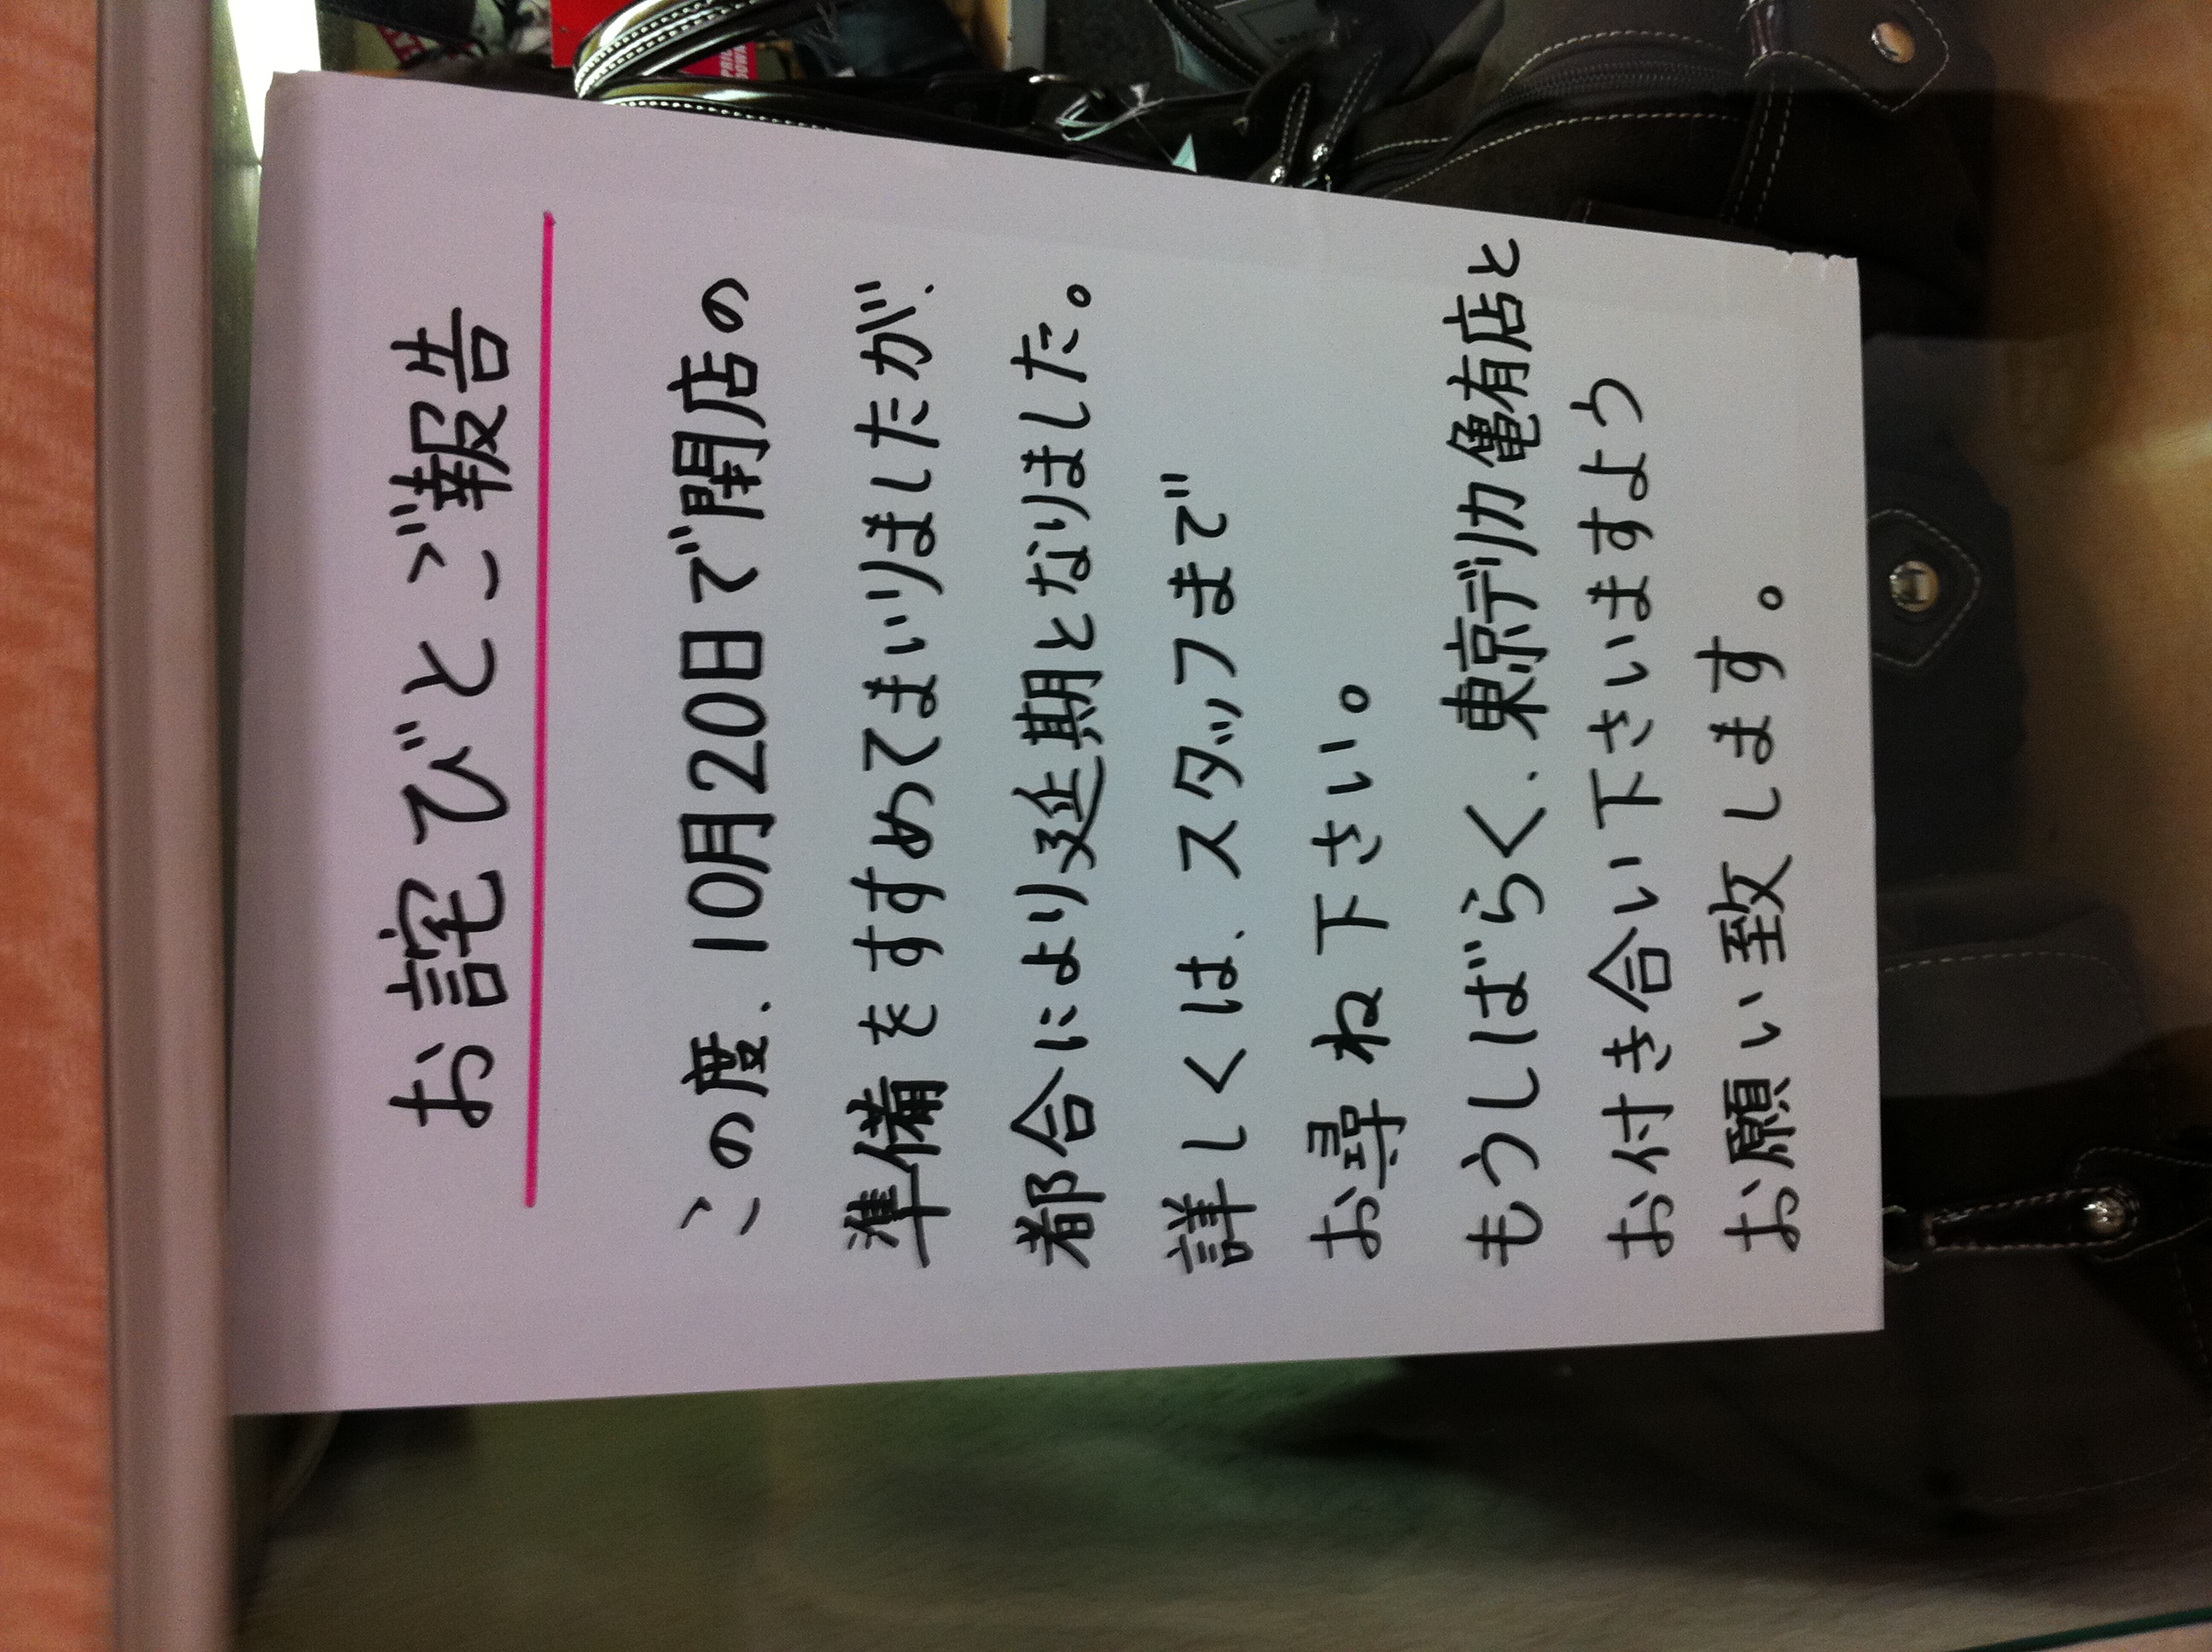 お詫びとご報告
この度、10月20日で閉店の
準備をすすめてまいりましたが、
都合により延期となりました。
詳しくは、スタッフまで
お尋ね下さい。
もうしばらく、東京デリカ亀有店と
お付き合い下さいますよう
お願い致します。